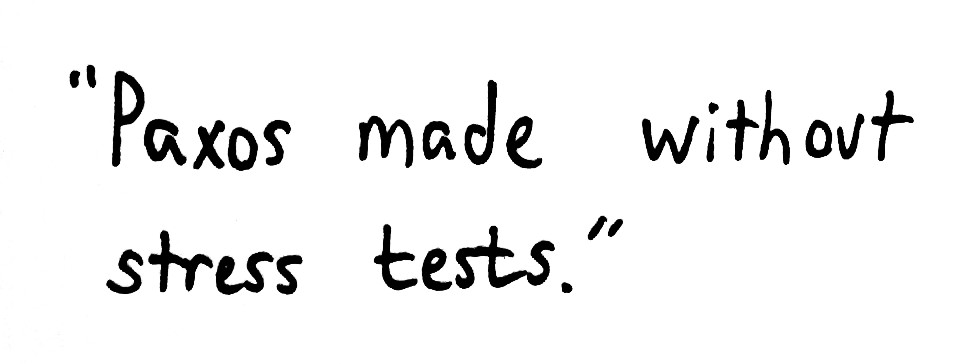 "Paxos made without
stress tests."